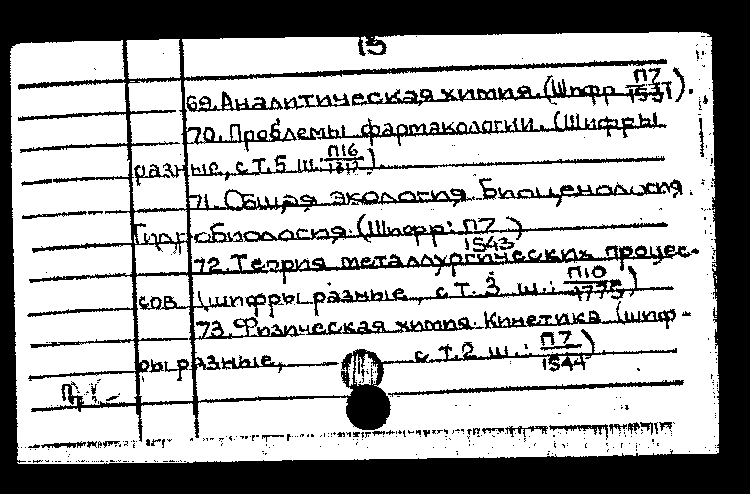 15
69. Аналитическая химия. (Шифр П7/1531).
70. Проблемы фармакологии. (Шифры
разные, с т.5 ш. П16/1317).
71. Общая экология. Биоценология.
Гидробиология. (Шифр: П7/1543)
72. Теория металлургических процес-
сов (шифры разные, с т. 3 ш.: П10/4775)
73. Физическая химия. Кинетика (шиф-
ры разные, с т.2 ш.: П7/1544).